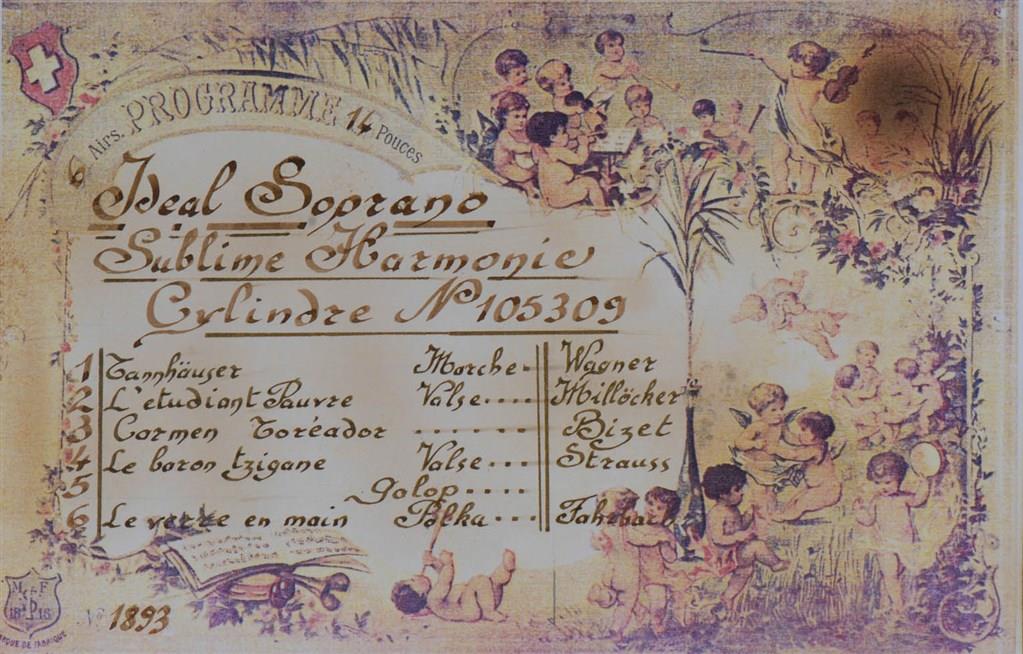 6 Airs. PROGRAMME 14 Pouces
Ideal Soprano
Sublime Harmonie
Cylindre No 105309
1 Tannhäuser Marche. Wagner
2 L'etudiant Pauvre Valse.... Millöcker
3 Carmen Toréador ...... Bizet
4 Le baron tzigane Valse... Strauss
5 Golop....
6 Le verre en main Polka... Fahrbach
M F
18 18
MARQUE DE FABRIQUE
No 1893